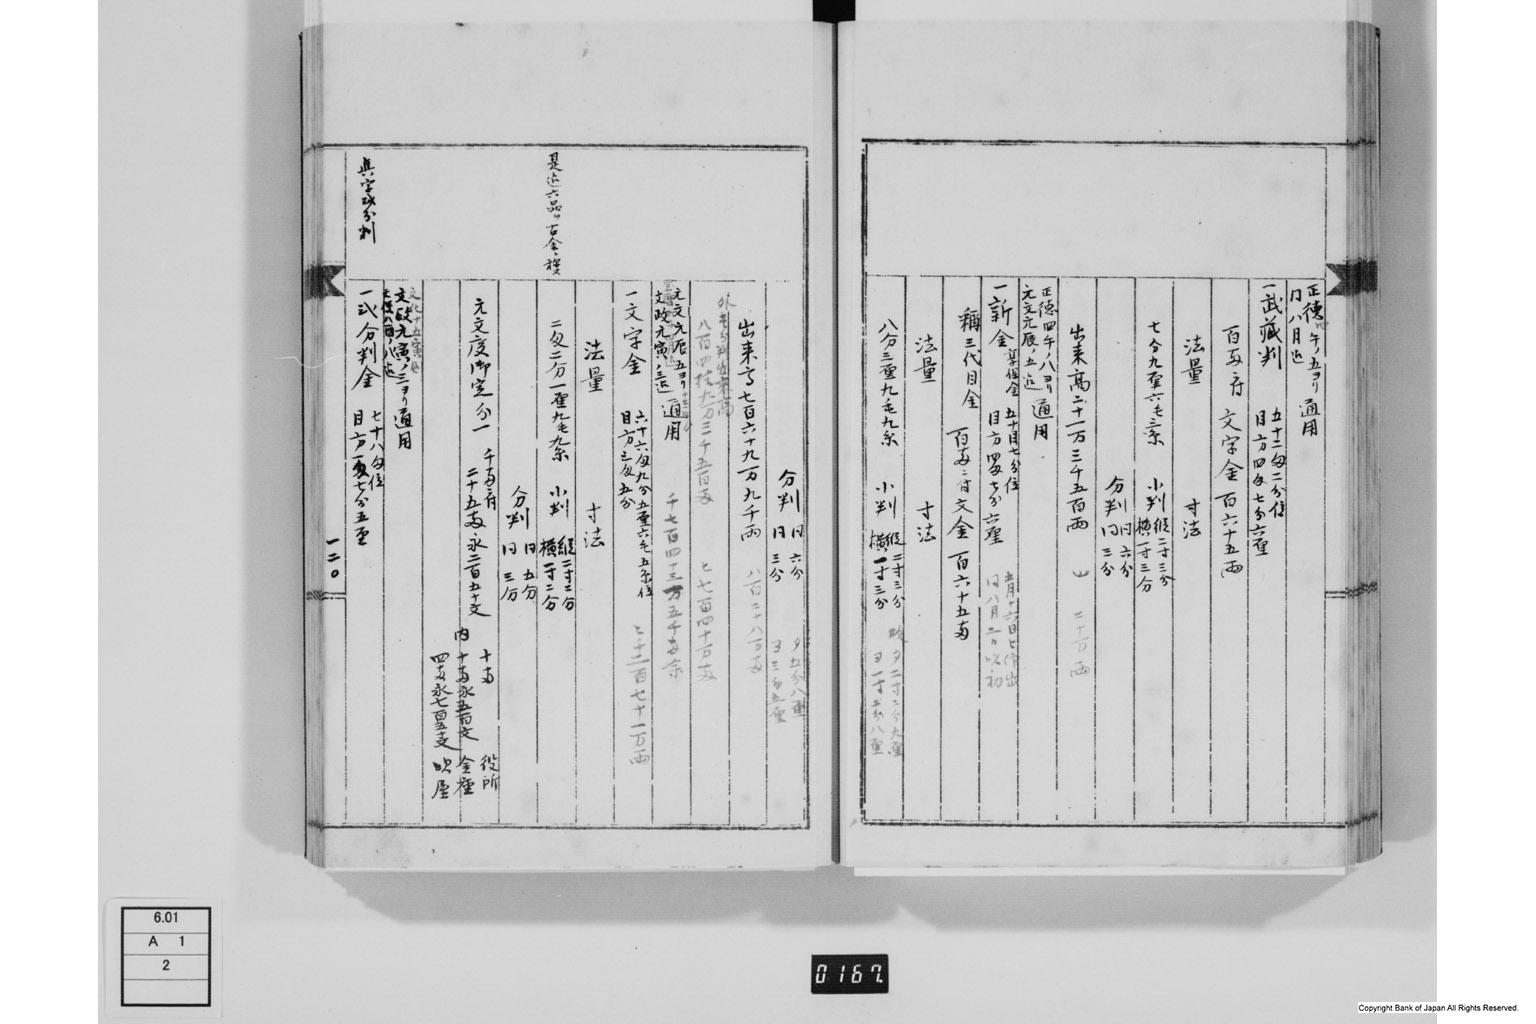 正徳四午ノ五ヨリ
同八月迄
通用
一武蔵判
五十二匁二分位
目方四匁七分六厘
百両ニ付 文字金百六十五両
法量 寸法
七分九厘六毛三糸 小判
縦二寸三分
横一寸三分
分判
同六分
同三分
出来高二十一万三千五百両
二十万両
正徳四午ノ八ヨリ
元文元辰ノ五迄
通用
一新金
享保金
五十目七分位
目方四匁七分六厘
同八月二日
稱三代目金 百両ニ付文金百六十五両
法量 寸法
八分三厘九毛九糸 小判
縦二寸三分
横一寸三分
分判
同六分
同三分
出来高七百六十九万九千両
八百二十八万両
七百四十万両
元文元辰ノ五ヨリ
文政元寅ノ三迄
通用
千七百四十三万五千両余
一文字金
六十六匁九分五厘六毛五糸位
目方三匁五分
法量 寸法
是迄六品ヲ古金ト称
二匁二分一厘九毛九糸 小判
縦二寸二分
横一寸二分
分判
同五分
同三分
元文度御定分一
千両ニ付
二十五両永二百五十文
内
十両 役所
十両永五百文 金座
四両永七百五十文 吹屋
文政元寅ノ三ヨリ
通用
真字弐分判
一弐分判金
七十八匁位
目方一匁七分五厘
一二〇
6.01
A 1
2
0167.
Copyright Bank of Japan All Rights Reserved.